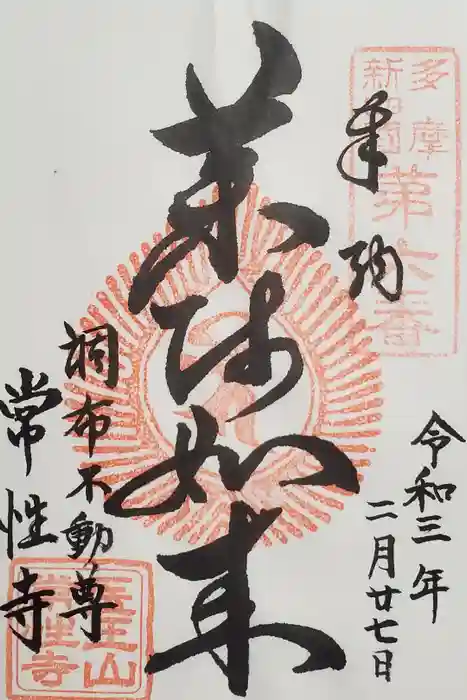 多摩
新四国
第六番
奉拝
令和三年
二月廿七日
薬師如来
調布不動尊
常性寺
医王山
常性寺